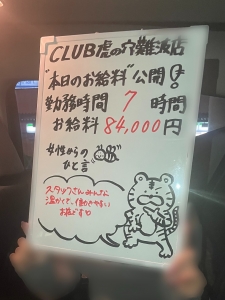 CLUB虎の穴難波店
"本日のお給料"公開!
勤務時間 7 時間
お給料 84,000円
女性からの
ひと言
スタッフさんみんな
温かくて、働きやすい
お店です